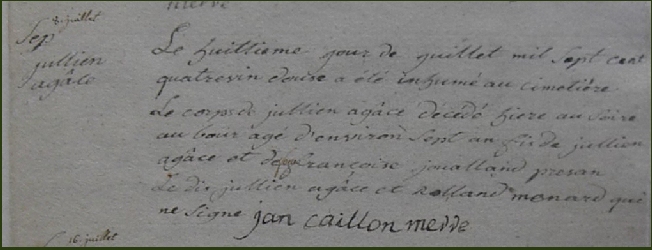 merre
8. juillet
Sep
jullien
agâce
Le huittieme jour de juillet mil sept cent
quatrevin douse a été inhumé au cimetiére
Le corps de jullien agâce décédé hiere au soire
au bour âgé d'environ sept an fis de jullien
agâce et de françoise joualland presan
Le dis jullien agâce et Rolland monard qui
ne signe jan caillon merre
16. juillet